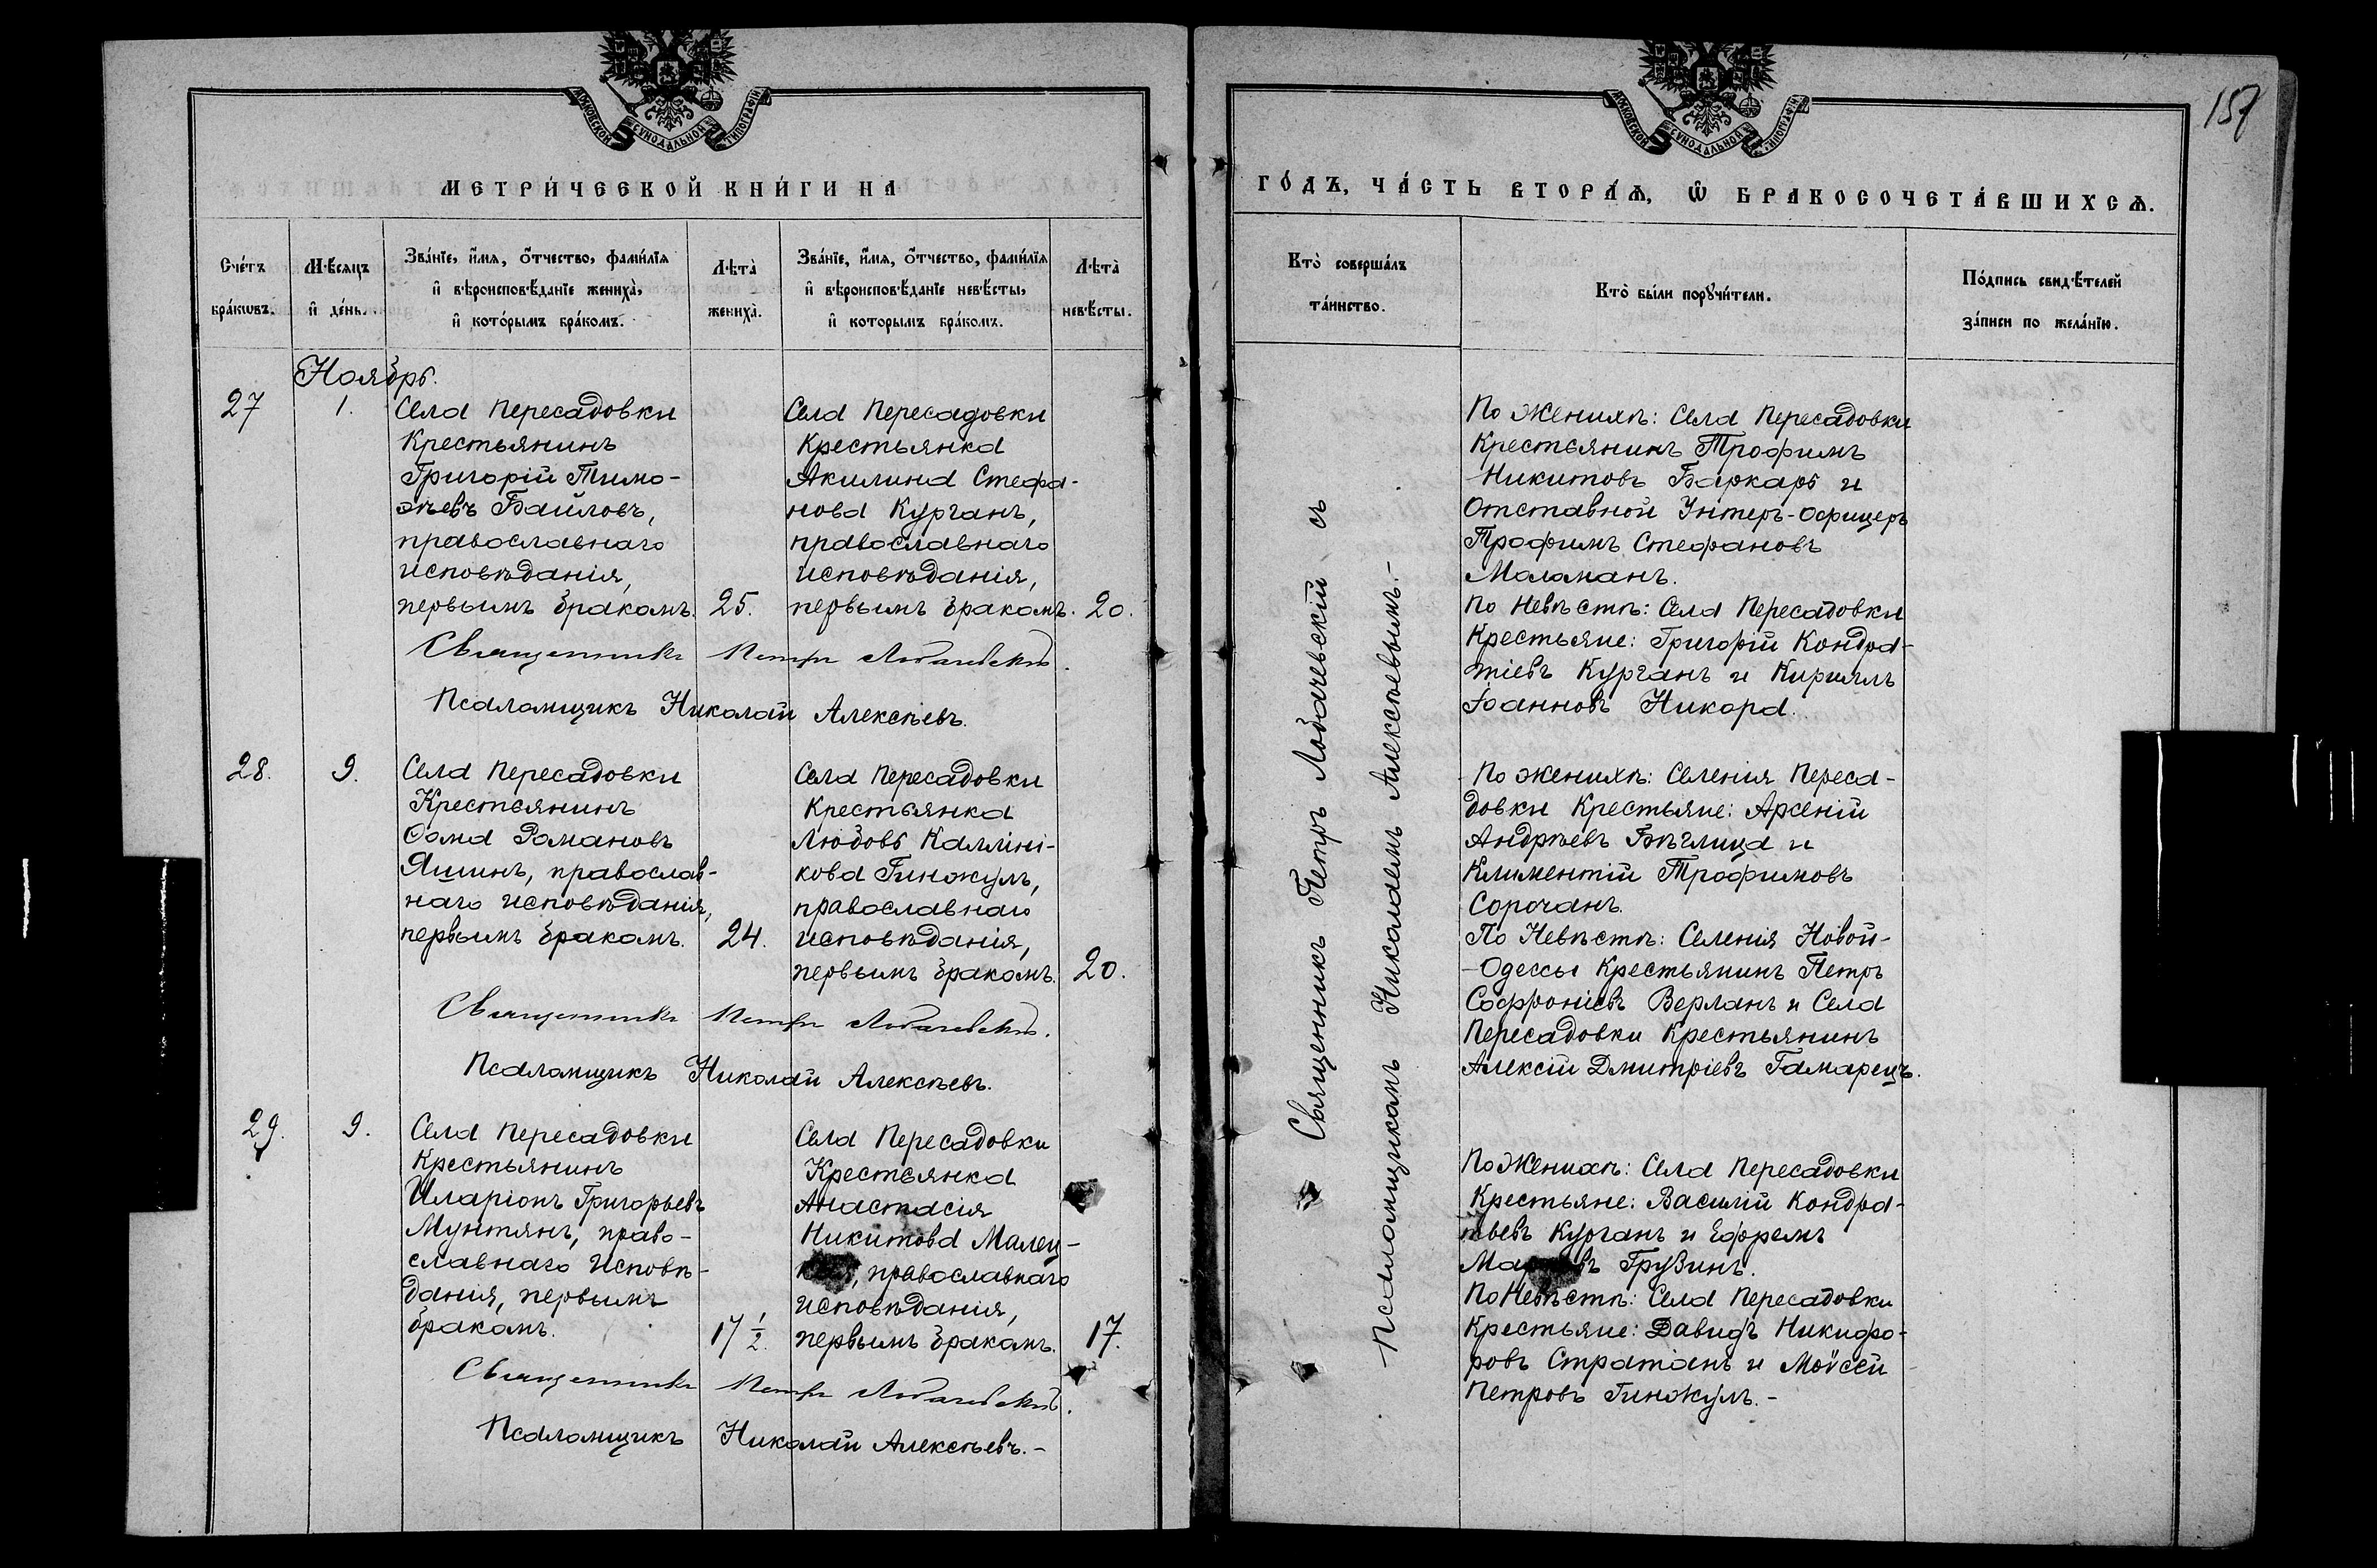 МОСКОВСКОЙ СУНОДАЛЬНОЙ ТИПОГРАФІИ
МЕТРИ́ЧЕСКОЙ КНИ́ГИ НА
Сче́тъ
бра́кѡвъ.
Мѣсяцъ
и҆ де́нь.
Зва́нїе, и҆́мѧ, ѻ҆́тчество, фами́лїѧ
и҆ вѣроисповѣ́данїе жениха̀,
и҆ кото́рымъ бра́комъ.
Лѣта̀
жениха̀.
Зва́нїе, и҆́мѧ, ѻ҆́тчество, фами́лїѧ
и҆ вѣроисповѣ́данїе невѣ́сты,
и҆ которымъ бра́комъ.
Лѣта̀
невѣ́сты.
Ноябрь.
27
1.
Села Пересадовки
Крестьянинъ
Григорій Тимо-
ѳѣевъ Байловъ,
православнаго
исповѣданія,
первымъ бракомъ.
25.
Села Пересадовки
Крестьянка
Акилина Стефа-
нова Курганъ,
православнаго
исповѣданія,
первымъ бракомъ.
20.
Священникъ Петръ Лобачевскій.
Псаломщикъ Николай Алексѣевъ.
28.
9.
Села Пересадовки
Крестьянинъ
Ѳома Романовъ
Яшинъ, православ-
наго исповѣданія,
первымъ бракомъ.
24.
Села Пересадовки
Крестьянка
Любовь Каллині-
кова Гинжулъ,
православнаго
исповѣданія,
первымъ бракомъ.
20.
Священникъ Петръ Лобачевскій.
Псаломщикъ Николай Алексѣевъ.
29.
9.
Села Пересадовки
Крестьянинъ
Иларіонъ Григорьевъ
Мунтянъ, право-
славнаго исповѣ-
данія, первымъ
бракомъ.
17 1/2.
Села Пересадовки
Крестьянка
Анастасія
Никитова Малец-
православнаго
исповѣданія,
первымъ бракомъ.
17.
Священникъ Петръ Лобачевскій.
Псаломщикъ Николай Алексѣевъ.-
157
МОСКОВСКОЙ СУНОДАЛЬНОЙ ТИПОГРАФІИ
ГО́ДЪ, ЧА́СТЬ ВТОРА́Ѧ, Ѡ҆ БРАКОСОЧЕТА́ВШИХСѦ.
Кто̀ соверша́лъ
та́инство.
Кто̀ бы́ли порꙋчи́тели.
По́дпись свидѣ́телей
за́писи по жела́нїю.
Священникъ Петръ Лобачевскій съ
Псаломщикомъ Николаемъ Алексѣевымъ.-
По Женихѣ: Села Пересадовки
Крестьянинъ Трофимъ
Никитовъ Баркарь и
Отставной Унтеръ-Офицеръ
Трофимъ Стефановъ
Маламанъ.
По Невѣстѣ: Села Пересадовки
Крестьяне: Григорій Кондра-
тіевъ Курганъ и Кириллъ
Іоанновъ Никора.
По женихѣ: Селенія Переса-
довки Крестьяне: Арсеній
Андрѣевъ Бѣглица и
Климентій Трофимовъ
Сорочанъ.
По Невѣстѣ: Селенія Новой-
-Одессы Крестьянинъ Петръ
Софроніевъ Верланъ и Села
Пересадовки Крестьянинъ
Алексій Дмитріевъ Гамарецъ.
По Женихѣ: Села Пересадовки
Крестьяне: Василій Кондра-
тьевъ Курганъ и Ефремъ
Грузинъ.
По Невѣстѣ: Села Пересадовки
Крестьяне: Давидъ Никифо-
ровъ Стратанъ и Моѵсей
Петровъ Гинжулъ.-